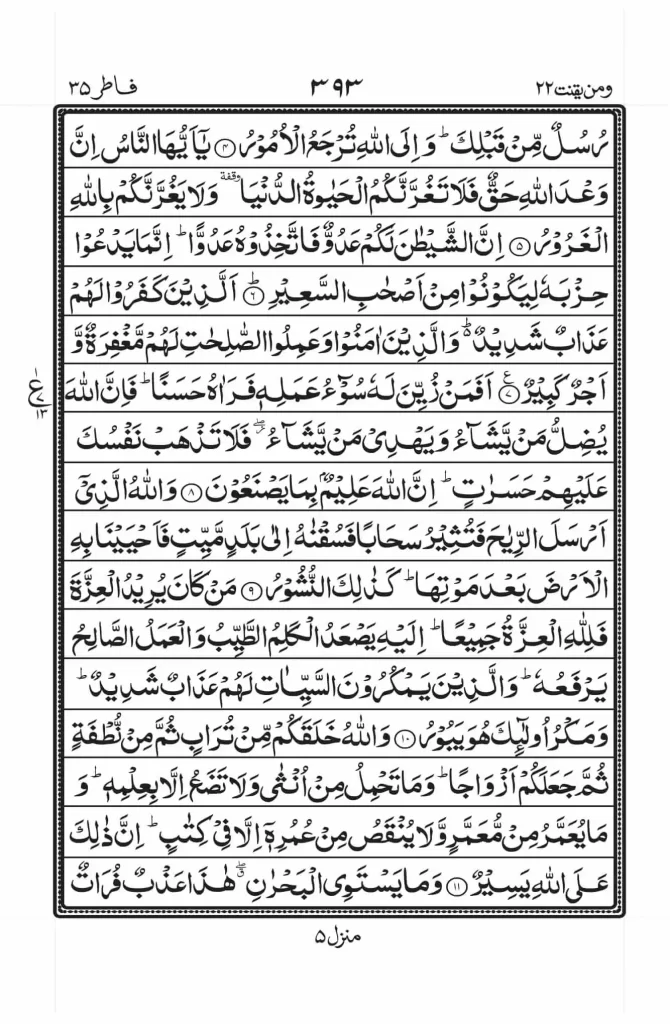 ومن یقنت ۲۲ ۳۹۳ فاطر ۳۵
رُسُلٌ مِّنۡ قَبۡلِكَ ؕ وَ اِلَى اللّٰهِ تُرۡجَعُ الۡاُمُوۡرُ ﴿۴﴾ يٰۤاَيُّهَا النَّاسُ اِنَّ
وَعۡدَ اللّٰهِ حَقٌّ فَلَا تَغُرَّنَّكُمُ الۡحَيٰوةُ الدُّنۡيَا وقفة وَلَا يَغُرَّنَّكُمۡ بِاللّٰهِ
الۡغَرُوۡرُ ﴿۵﴾ اِنَّ الشَّيۡطٰنَ لَكُمۡ عَدُوٌّ فَاتَّخِذُوۡهُ عَدُوًّا ؕ اِنَّمَا يَدۡعُوۡا
حِزۡبَهٗ لِيَكُوۡنُوۡا مِنۡ اَصۡحٰبِ السَّعِيۡرِ ﴿۶﴾ؕ اَلَّذِيۡنَ كَفَرُوۡا لَهُمۡ
عَذَابٌ شَدِيۡدٌ ؕ۬ وَالَّذِيۡنَ اٰمَنُوۡا وَعَمِلُوا الصّٰلِحٰتِ لَهُمۡ مَّغۡفِرَةٌ وَّ
اَجۡرٌ كَبِيۡرٌ ﴿۷﴾ ع اَفَمَنۡ زُيِّنَ لَهٗ سُوۡٓءُ عَمَلِهٖ فَرَاٰهُ حَسَنًا ؕ فَاِنَّ اللّٰهَ
ع ۷ ۱۳
يُضِلُّ مَنۡ يَّشَآءُ وَيَهۡدِىۡ مَنۡ يَّشَآءُ ۖ فَلَا تَذۡهَبۡ نَفۡسُكَ
عَلَيۡهِمۡ حَسَرٰتٍ ؕ اِنَّ اللّٰهَ عَلِيۡمٌۢ بِمَا يَصۡنَعُوۡنَ ﴿۸﴾ وَاللّٰهُ الَّذِىۡۤ
اَرۡسَلَ الرِّيٰحَ فَتُثِيۡرُ سَحَابًا فَسُقۡنٰهُ اِلٰى بَلَدٍ مَّيِّتٍ فَاَحۡيَيۡنَا بِهِ
الۡاَرۡضَ بَعۡدَ مَوۡتِهَا ؕ كَذٰلِكَ النُّشُوۡرُ ﴿۹﴾ مَنۡ كَانَ يُرِيۡدُ الۡعِزَّةَ
فَلِلّٰهِ الۡعِزَّةُ جَمِيۡعًا ؕ اِلَيۡهِ يَصۡعَدُ الۡكَلِمُ الطَّيِّبُ وَالۡعَمَلُ الصَّالِحُ
يَرۡفَعُهٗ ؕ وَالَّذِيۡنَ يَمۡكُرُوۡنَ السَّيِّاٰتِ لَهُمۡ عَذَابٌ شَدِيۡدٌ ؕ
وَمَكۡرُ اُولٰٓئِكَ هُوَ يَبُوۡرُ ﴿۱۰﴾ وَاللّٰهُ خَلَقَكُمۡ مِّنۡ تُرَابٍ ثُمَّ مِنۡ نُّطۡفَةٍ
ثُمَّ جَعَلَكُمۡ اَزۡوَاجًا ؕ وَمَا تَحۡمِلُ مِنۡ اُنۡثٰى وَلَا تَضَعُ اِلَّا بِعِلۡمِهٖ ؕ وَ
مَا يُعَمَّرُ مِنۡ مُّعَمَّرٍ وَّلَا يُنۡقَصُ مِنۡ عُمُرِهٖۤ اِلَّا فِىۡ كِتٰبٍ ؕ اِنَّ ذٰلِكَ
عَلَى اللّٰهِ يَسِيۡرٌ ﴿۱۱﴾ وَمَا يَسۡتَوِى الۡبَحۡرٰنِ ۖ هٰذَا عَذۡبٌ فُرَاتٌ
منزل ۵